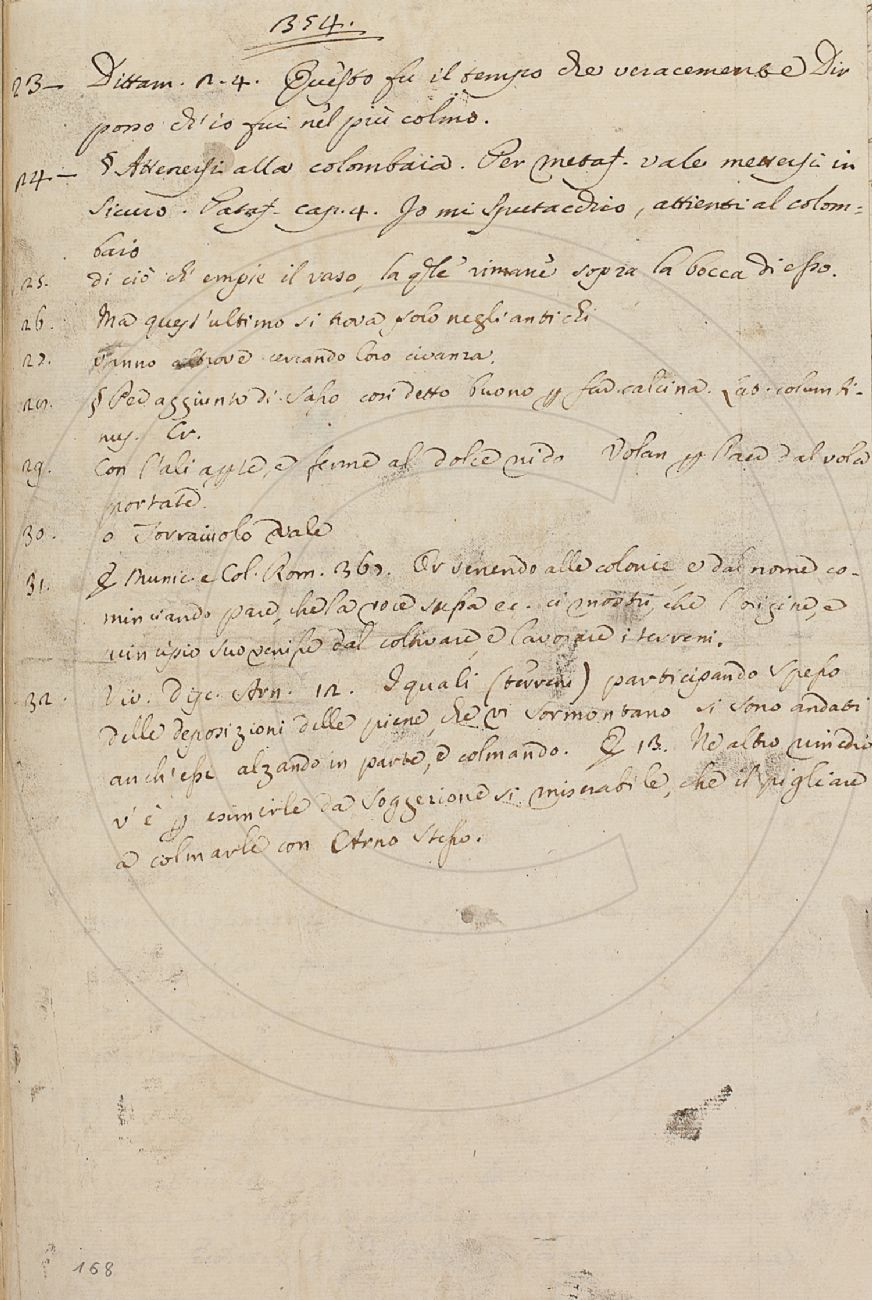 354.
23 — Dittam. 2. 4. Questo fu il tempo che veracemente Dir
posso ch'io fui nel più colmo.
24 — § Attenersi alla colombaia. Per metaf. vale mettersi in
sicuro. Pataf. cap. 4. Jo mi sputacchio, attienti al colom=
baio
25. di ciò ch'empie il vaso, la qle rimane sopra la bocca di esso.
26. Ma quest'ultimo si trova solo negli antichi
27. vanno altrove cercando loro civanza.
28. § Per aggiunto di Sasso così detto buono p far calcina. Lat. columbi-
nus. Cr.
29. Con l'ali aperte, e ferme al dolce nido Volan p l'aer dal voler
portate.
30. o Torraiuolo vale
31. E Munic. e Col. Rom. 367. Or venendo alle colonie, e dal nome co-
minciando pare, che la voce stessa ec. ci mostri, che l'origine, e
principio suo venisse dal coltivare, e lavorare i terreni.
32. Viv. Disc. Arn. 12. I quali (terreni) participando spesso
delle deposizioni delle piene, che vi sormontano si sono andati
anch'essi alzando in parte, e colmando. E 13. Ne altro rimedio
v'è p esimerle da soggezione si miserabile, che il pigliare
a colmarle con Arno stesso.
168